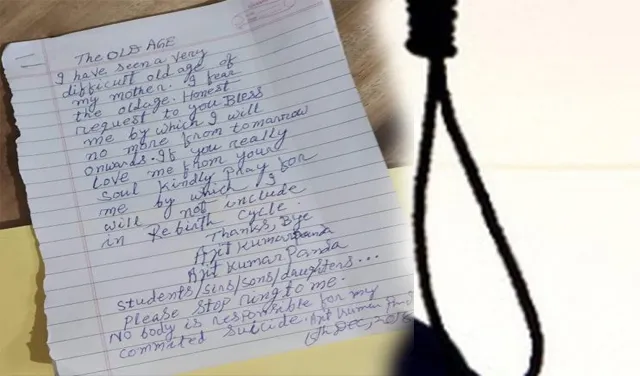 The OLD AGE
I have seen a very
difficult old age of
my mother. I fear
the oldage. Honest
request to you Bless
me by which I will
no more from tomorrow
onwards. If you really
Love me from your
Soul kindly Pray for
me by which I
will not include
in Rebirth cycle.
Thanks, Bye
Ajit Kumar Panda
Ajit Kumar Panda
Students/sirs/sons/daughters...
Please stop ring to me.
No body is responsible for my
commited suicide. Ajit Kumar